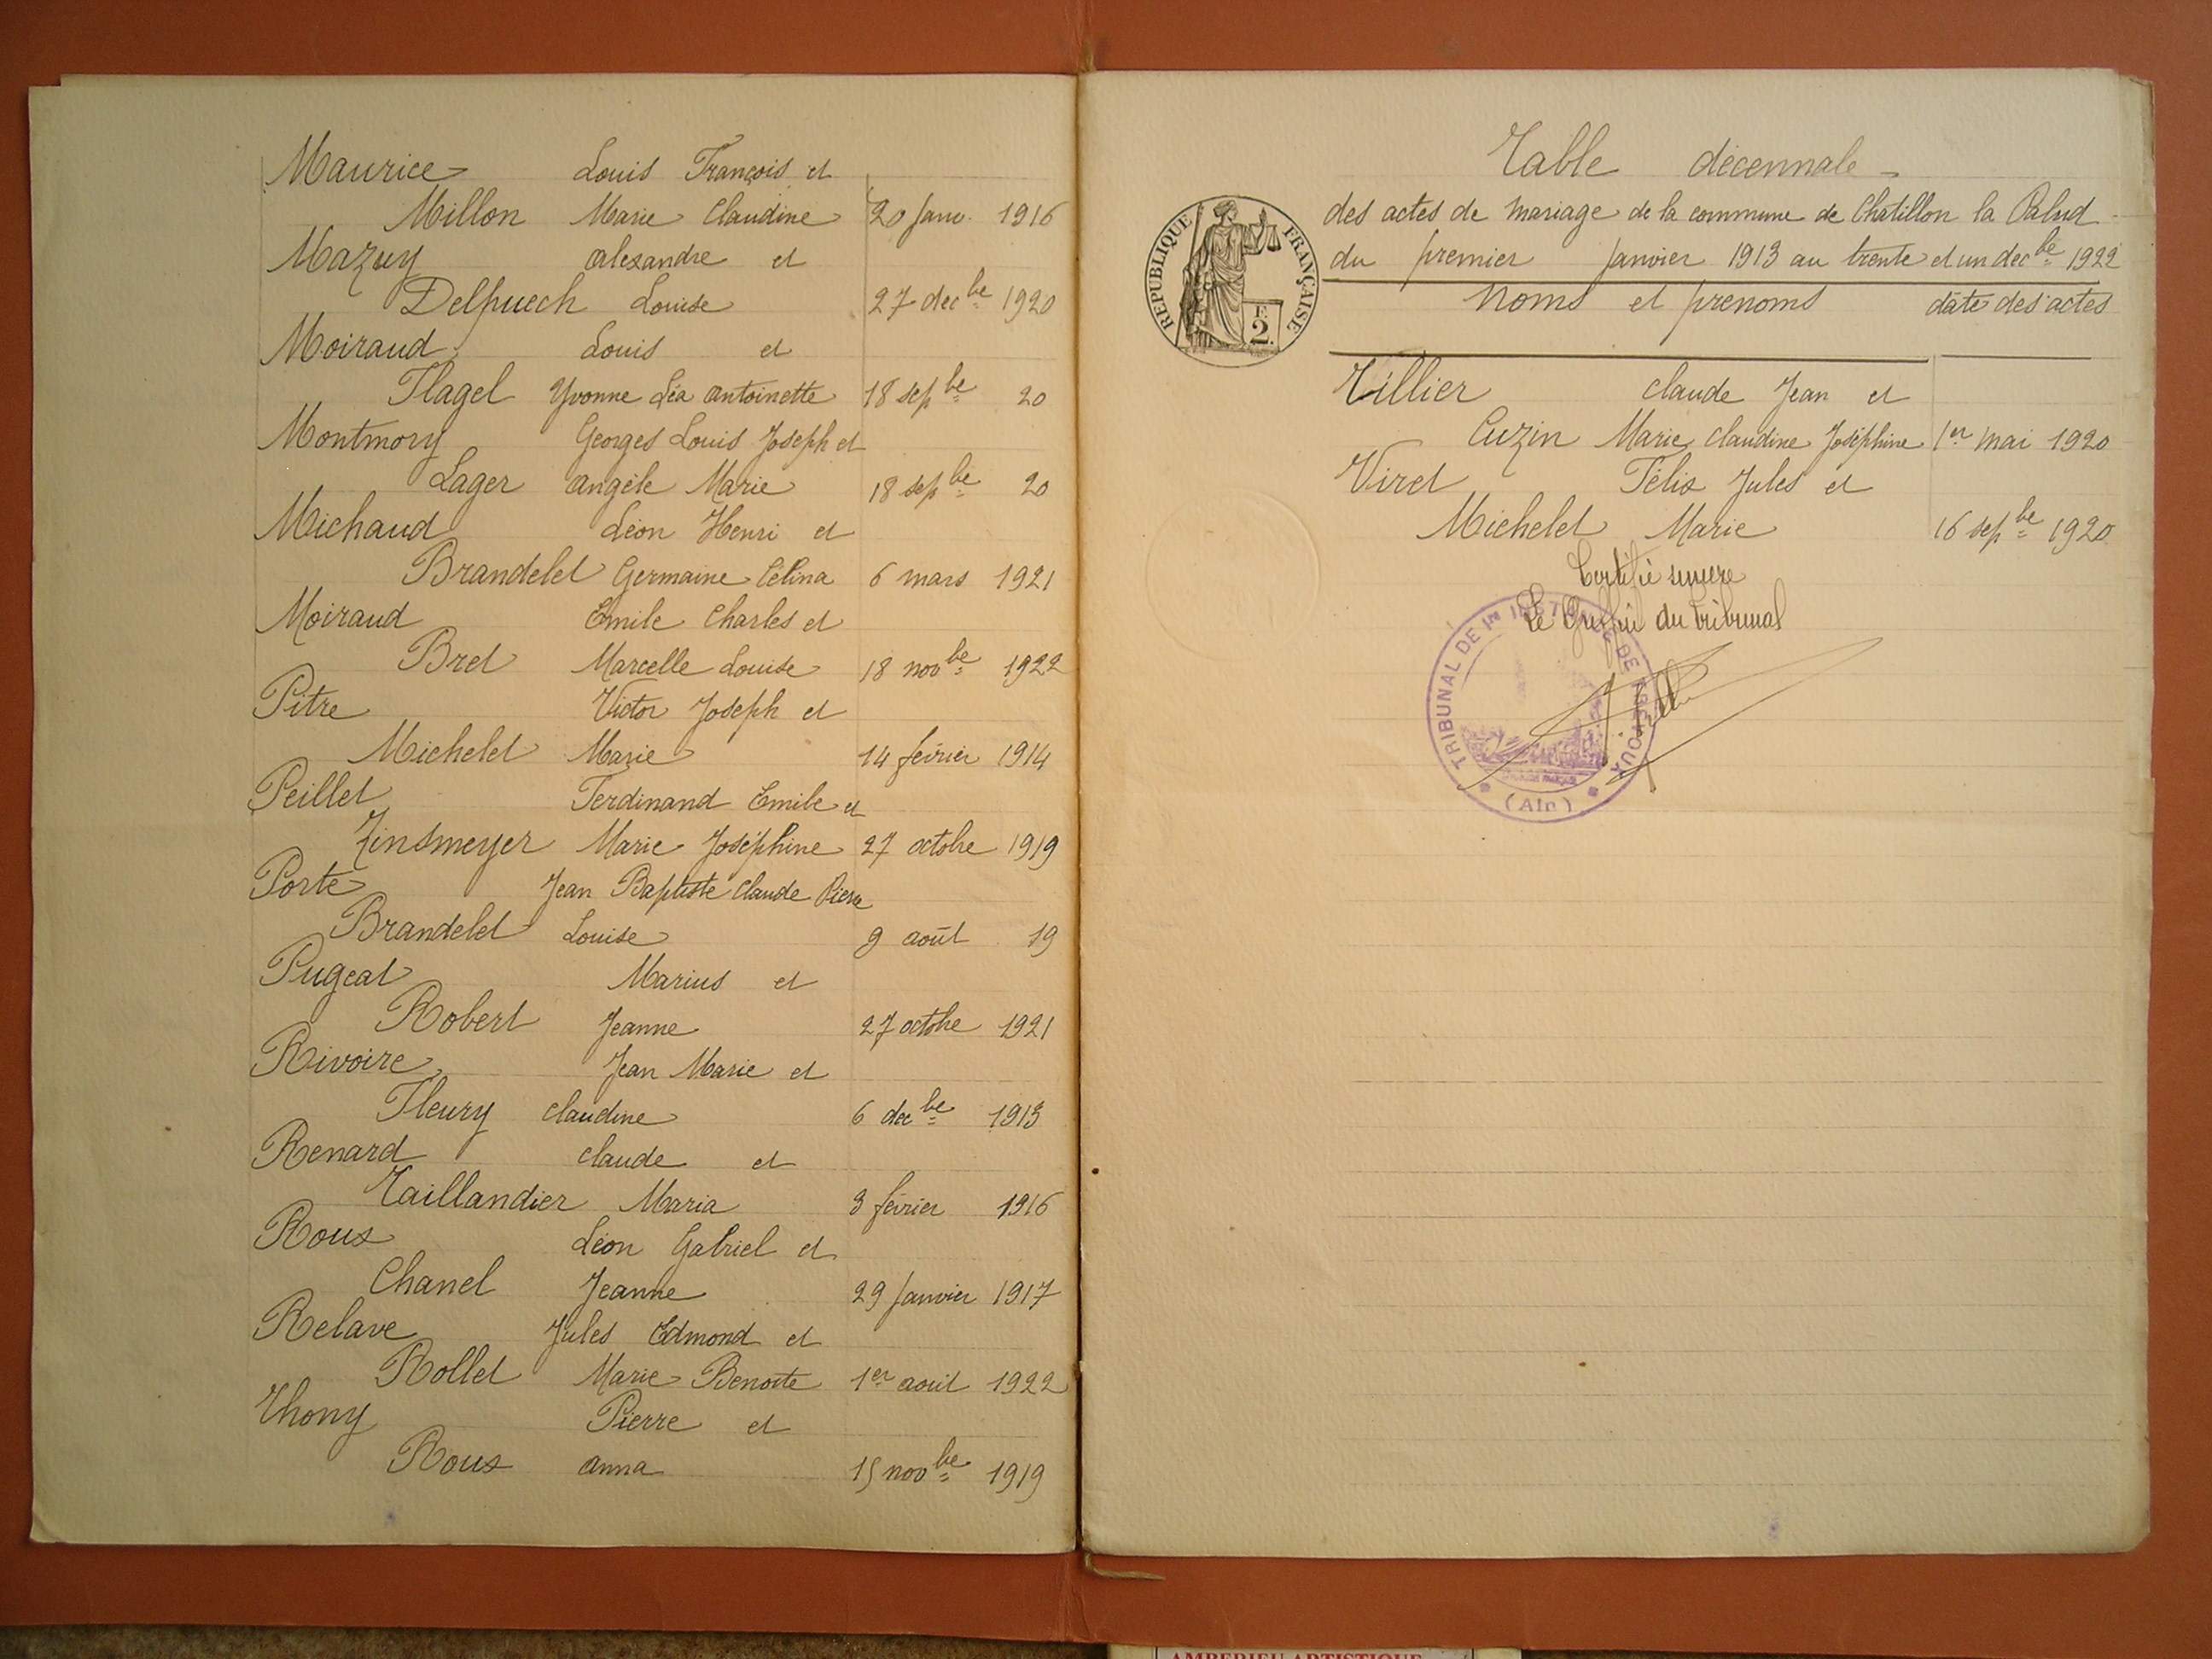 Maurice Louis François et
Millon Marie Claudine 20 Janv. 1916
Mazuy Alexandre et
Delpuech Louise 27 dec be 1920
Moiraud Louis et
Flagel Yvonne Léa Antoinette 18 sep be 20
Montmory Georges Louis Joseph et
Lager Angèle Marie 18 sep be 20
Michaud Léon Henri et
Brandelet Germaine Célina 6 mars 1921
Moiraud Emile Charles et
Bret Marcelle Louise 18 nov be 1922
Pitre Victor Joseph et
Michelet Marie 14 février 1914
Peillet Ferdinand Emile et
Zinsmeyer Marie Joséphine 27 octobre 1919
Porte Jean Baptiste Claude Pierre
Brandelet Louise 9 août 19
Pugeat Marius et
Robert Jeanne 27 octobre 1921
Rivoire Jean Marie et
Fleury Claudine 6 dec be 1913
Renard Claude et
Taillandier Maria 3 février 1916
Roux Léon Gabriel et
Chanel Jeanne 29 Janvier 1917
Relave Jules Edmond et
Rollet Marie Benoite 1er 1922
Thony Pierre et
Roux Anna 15 nov be 1919
Table décennale
des actes de mariage de la commune de Chatillon la Palud
du premier Janvier 1913 au trente et un dec be 1922
RÉPUBLIQUE FRANÇAISE
F.
2.
Noms et prenoms date des actes
Tillier Claude Jean et
Cuzin Marie Claudine Joséphine 1er Mai 1920
Viret Félix Jules et
Michelet Marie 16 sep be 1920
Certifié sincère
Le Greffier du Tribunal
TRIBUNAL DE 1re INSTANCE DE TRÉVOUX
(Ain)
AMBERIEU ARTISTIQUE